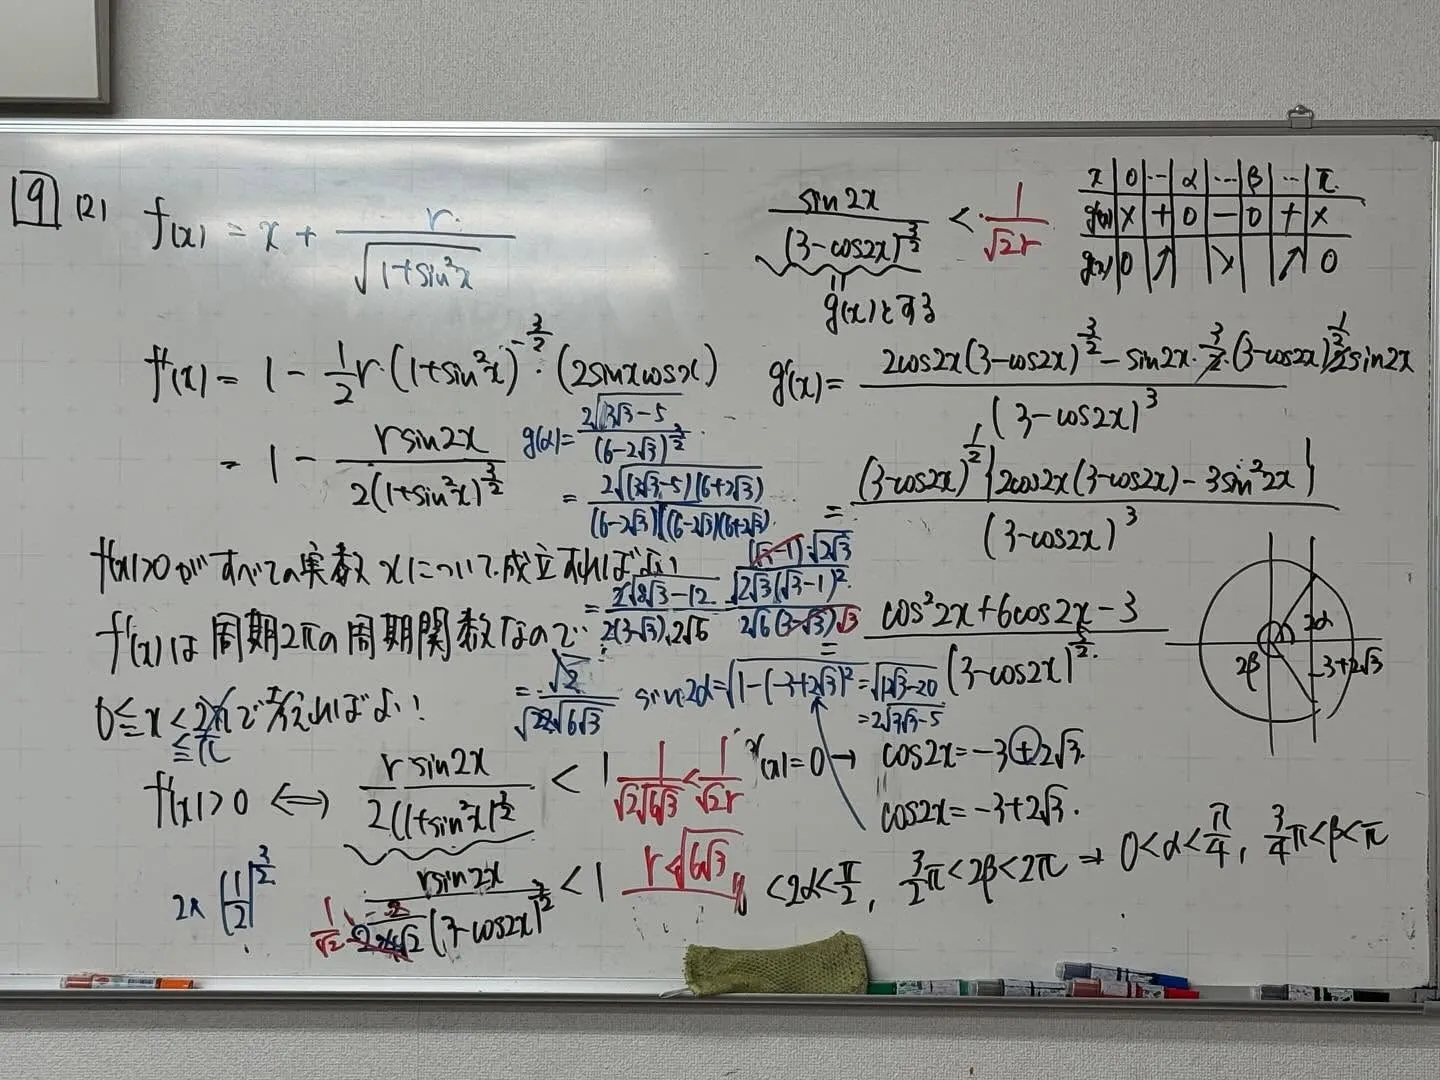 9 (2) f(x) = x + r / √(1+sin²x)
f'(x) = 1 − 1/2 r・(1+sin²x)^(−3/2)・(2sinxcosx)
= 1 − rsin2x / 2(1+sin²x)^(3/2)
f'(x)>0が すべての実数xについて成立すればよい
f'(x)は 周期2πの周期関数なので
0≦x<2πで考えればよい
≦π
f'(x)>0 ⟺ rsin2x / 2(1+sin²x)^(3/2) < 1
rsin2x / (3−cos2x)^(3/2) < 1
1/√2
2× (1/2)^(3/2)
g(α)= 2√(3√3−5) / (6−2√3)^(3/2)
= 2√((3√3−5)(6+2√3)) / (6−2√3)√((6−2√3)(6+2√3))
= 2√(8√3−12) / 2(3−√3)・2√6
(√3−1)・√(2√3)
√(2√3(√3−1)²) / 2√6(3−√3)√3
= √2 / √2√(6√3)
sin2α=√(1−(−3+2√3)²)=√(12√3−20)
=2√(3√3−5)
1/√2√(6√3) < 1/√2r
r<√(6√3)
sin2x / (3−cos2x)^(3/2) < 1/√2r
g(x)とする
x 0 … α … β … π
g'(x) × + 0 − 0 + ×
g(x) 0 ↗ ↘ ↗ 0
g'(x)= 2cos2x(3−cos2x)^(3/2) − sin2x・3/2・(3−cos2x)^(1/2)・2sin2x / (3−cos2x)³
= (3−cos2x)^(1/2){2cos2x(3−cos2x)−3sin²2x} / (3−cos2x)³
= cos²2x+6cos2x−3 / (3−cos2x)^(5/2)
2α
2β
−3+2√3
g'(x)=0 → cos2x=−3+2√3
cos2x=−3+2√3.
<2α<π/2, 3/2π<2β<2π → 0<α<π/4, 3/4π<β<π